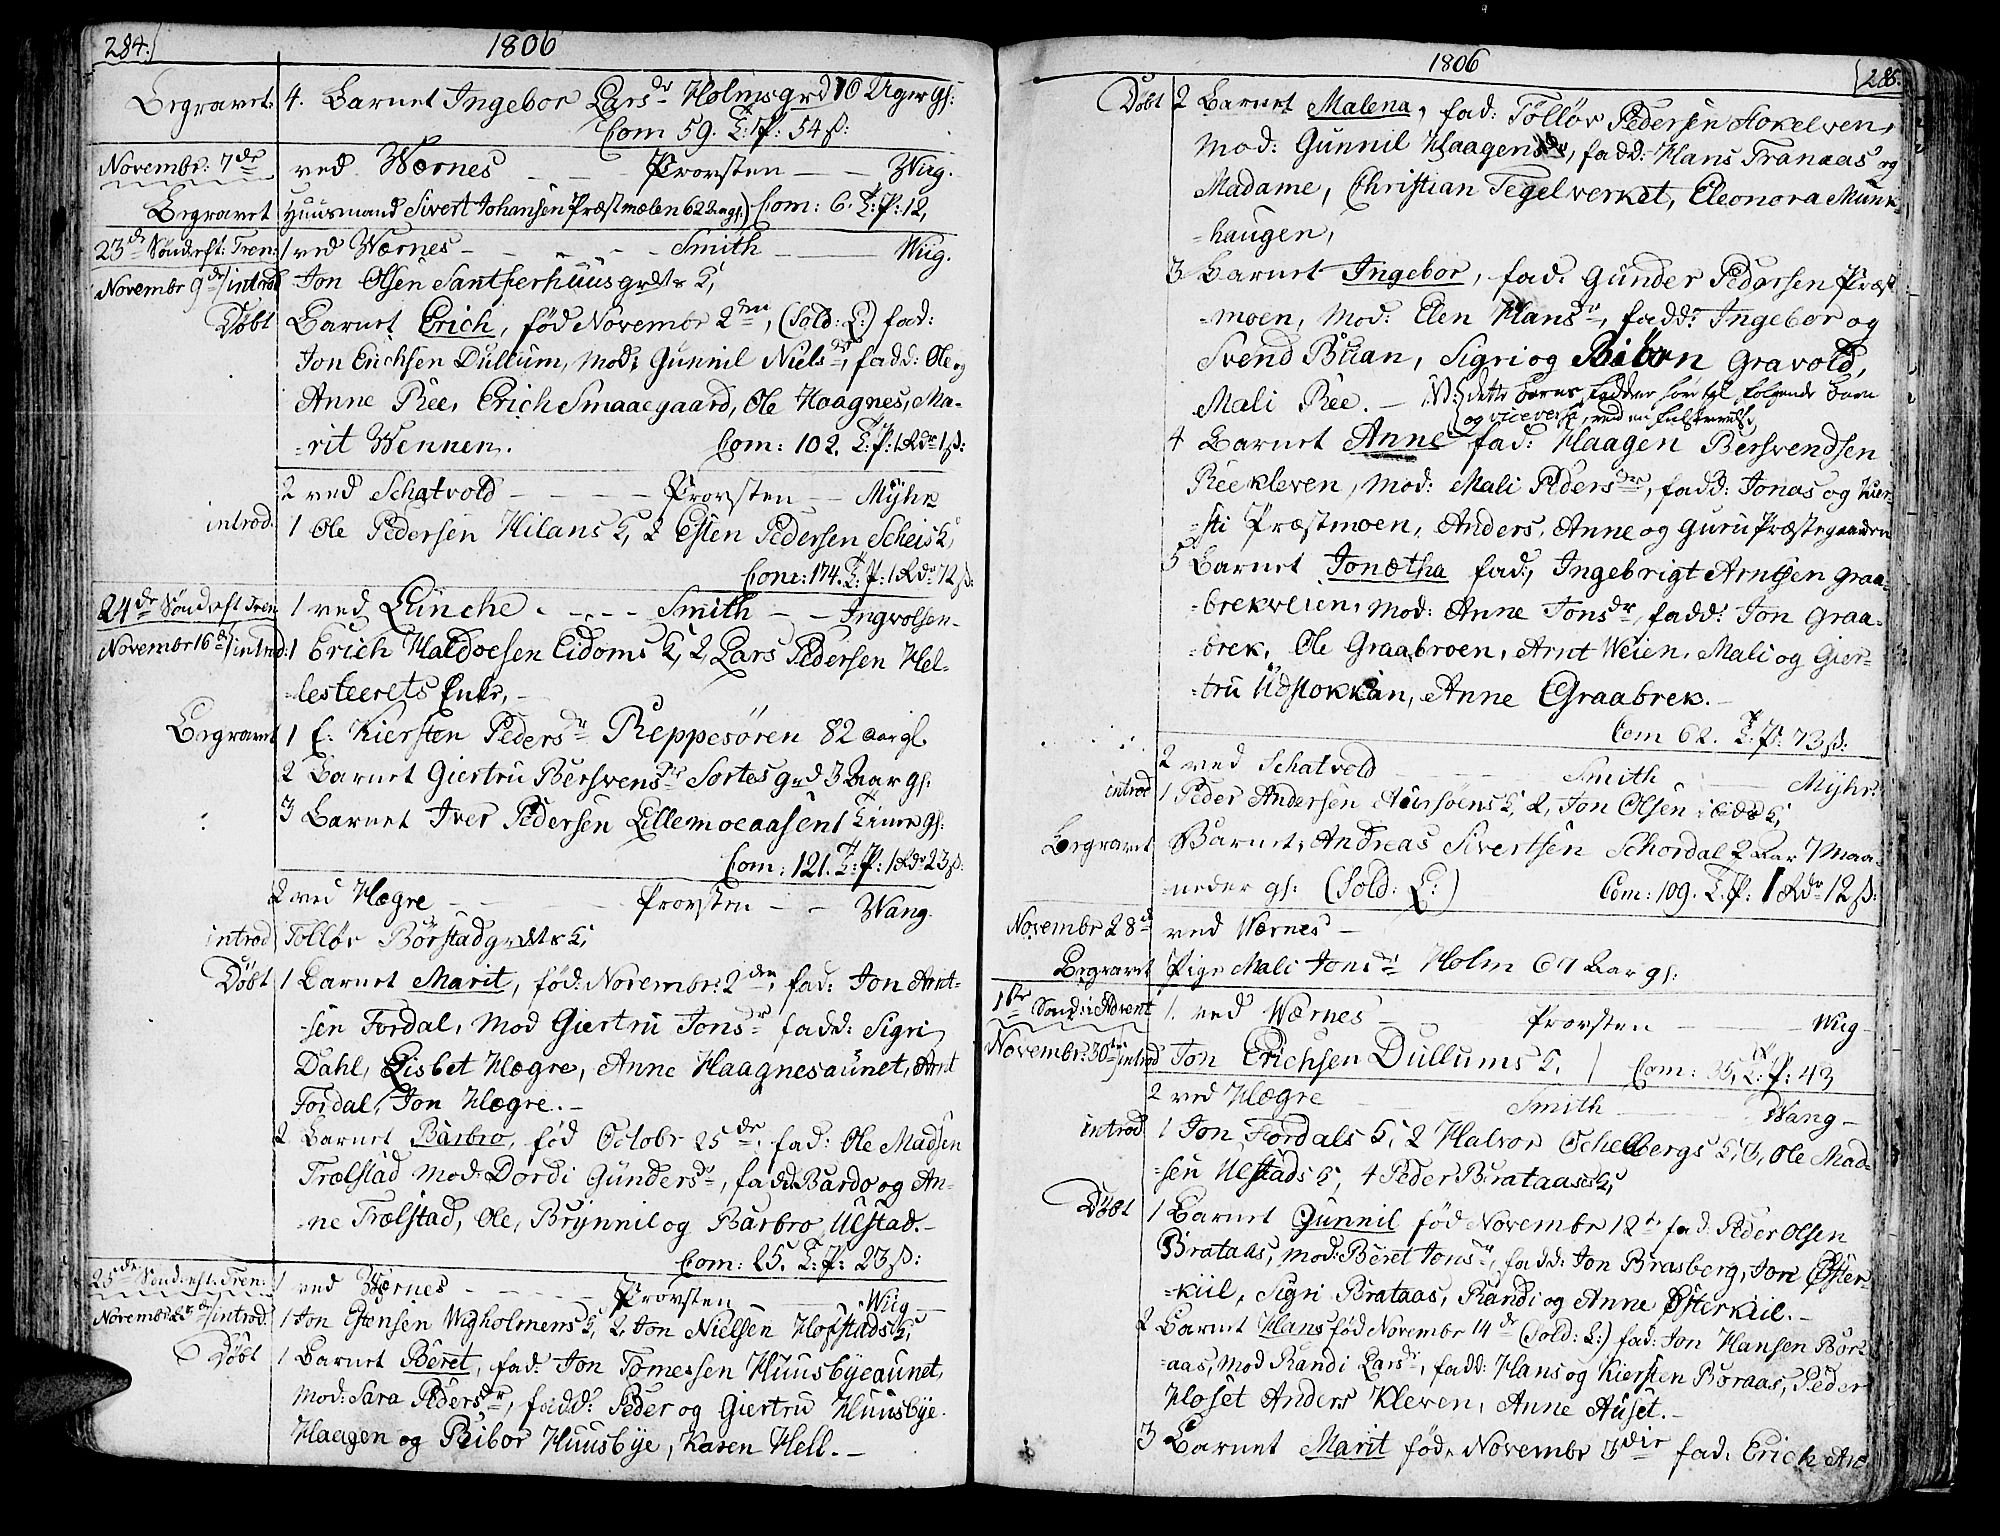 284.
1806
Begravet. 4. Barnet Ingebor Larsdr Holmsgrd 10 Uger gl:
Com 59. T: P: 54 ß:
Novembr: 7de ved Wærnes - - - Provsten - - Wiig.
Begravet Huusmand Sivert Johansen Præstmælen 62 Aar gl:) Com: 6. T: P: 12,
23de Sønd: eft: Tren: 1 ved Wærnes - - - Smith - - Wiig.
Novembr 9de introd Jon Olsen Santferhuusgrdets K,
Døbt Barnet Erich, fød Novembr 2den, (Sold: L:) fad:
Jon Erichsen Dullum, Mod: Gunnil Nielsdr, fadd: Ole og
Anne Ree, Erich Smaaegaard, Ole Haagnes, Ma-
-rit Wennen.
Com: 102. T: P: 1 Rdr 1 ß:
2 ved Schatvold - - - - Provsten - - Myhr
introd: 1 Ole Pedersen Hilans K, 2 Esten Pedersen Scheis K,
Com: 174. T: P: 1 Rdr 72 ß:
24de Sønd: eft Tren 1 ved Lünche - - - - Smith - - Ingvolsen
Novembr 16de introd: 1 Erich Haldoesen Eidoms K, 2, Lars Pedersen Hel-
-lesteerets Enke,
Begravet 1 E: Kiersten Pedersdr Reppesören 82 aar gl.
2 Barnet Giertru Bersvensdr Sortesgrd 3 Aar gl:
3 Barnet Iver Pedersen Lillemoeaasen 1 Time gl:
Com: 121. T: P: 1 Rdr 23 ß:
2 ved Hegre - - - Provsten - - Wang.
introd Tolløv Börstadgrdets K,
Døbt 1 Barnet Marit, fød: Novembr: 2den, fad: Jon Arnt-
-sen Fordal, Mod Giertru Jonsdr fadd: Sigri
Dahl, Lisbet Hegre, Anne Haagnesaunet, Arnt
Fordal, Jon Hegre.
2 Barnet Barbro, fød Octobr 25de, fad: Ole Madsen
Trælstad Mod: Dordi Gundersdr, fadd: Bardo og An-
-ne Trælstad, Ole, Brynnil og Barbro Ulstad.
Com: 25. T: P: 23 ß:
25de Sønd: eft: Tren: 1 ved Wærnes - - - - Provsten - - Wiig
Novembr 23de introd: 1 Jon Estensen Wigholmens K, 2, Jon Nielsen Hofstads K,
Døbt 1 Barnet Beret, fad: Jon Tomessen Huusbyeaunet,
Mod: Sara Pedersdr, fadd: Peder og Giertru Huusbye.
Haagen og Ribor Huusbye, Karen Hell.
1806
285.
Døbt 2 Barnet Malena, fad: Tolløv Pedersen Stokelven,
Mod: Gunnil Haagensdr, fadd: Hans Tranaas og
Madame, Christian Tegelverket, Eleonora Munk-
-haugen,
3 Barnet Ingebor, fad: Gunder Pedersen Præst
-moen, Mod: Elen Hansdr, fadd: Ingebor og
Svend Buan, Sigri og Gravold,
Mali Ree. - NB: dette Barns Fadder hør til følgende Barn
og viceversa, ved en
4 Barnet Anne fad: Haagen Bersvendsen
Reekleven, Mod: Mali Pedersdr, fadd: Jonas og Kier-
-sti Præstmoen, Anders, Anne og Guru Præstegaarden
5 Barnet Jonetha fad: Ingebrigt Arntsen Graa-
-brekveien, Mod: Anne Jonsdr, fadd: Jon Graa-
-brek, Ole Graabroen, Arnt Weien, Mali og Gier-
-tru Udstokkan, Anne Graabrek.
Com 62. T: P: 73 ß:
2 ved Schatvold - - Smith - - Myhr:
introd 1 Peder Andersen Aursøens K, 2, Jon Olsen K,
Begravet Barnet, Andreas Sivertsen Schordal 2 Aar 7 Maa-
-neder gl: (Sold: L:) Com: 109. T: P: 1 Rdr 12 ß:
Novembr 28de ved Wærnes -
Begravet Pige Mali Jonsdr Holm 67 Aar gl:
1ste Sønd: i Advent 1. ved Wærnes - - Provsten - - Wiig
Novembr: 30te introd Jon Erichsen Dullums K. Com: 35, T: P: 43
2 ved Hegre - - Smith - - Wang
introd 1 Jon Fordals K, 2 Halvor Schelbergs K, 3, Ole Mad-
-sen Ulstads K, 4 Peder Brataas K,
Døbt 1 Barnet Gunnil fød Novembr 12te fad: Peder Olsen
Brataas, Mod: Beret Jonsdr, fadd: Jon Brasberg, Jon Øfter-
-kiil, Sigri Brataas, Randi og Anne Øfterkiil.
2 Barnet Hans fød Novembr 14de (Sold: L:) fad: Jon Hansen Bor-
-aas, Mod Randi Larsdr, fadd: Hans og Kiersten Boraas, Peder
Hoset Anders Kleven, Anne Auset.
3 Barnet Marit fød: Novembr 3die fad: Erich